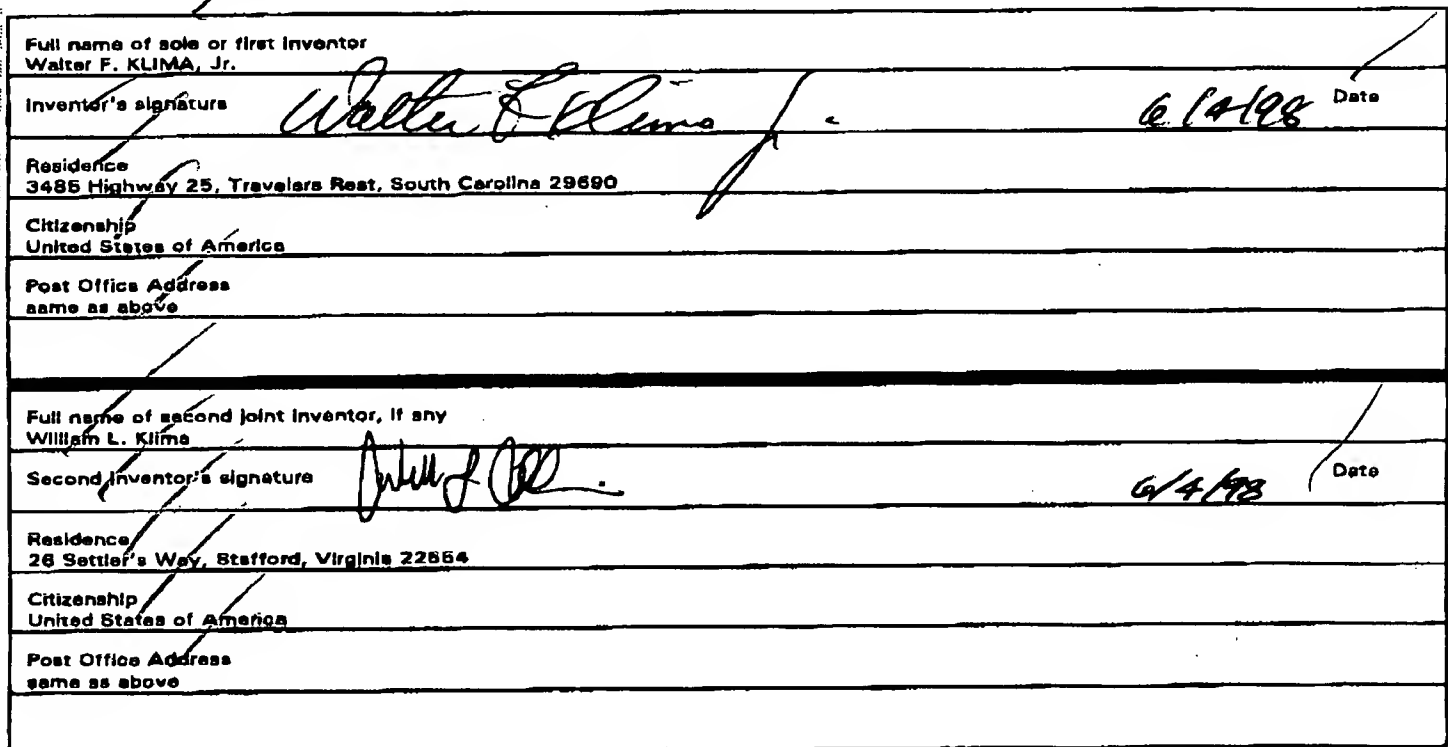 Full name of sole or first inventor
Walter F. KLIMA, Jr.
Inventor's signature Walter F Klima Jr. 6/4/98 Date
Residence
3485 Highway 25, Travelers Rest, South Carolina 29690
Citizenship
United States of America
Post Office Address
same as above
Full name of second joint inventor, if any
William L. Klima
Second inventor's signature 6/4/98 Date
Residence
26 Settler's Way, Stafford, Virginia 22554
Citizenship
United States of America
Post Office Address
same as above